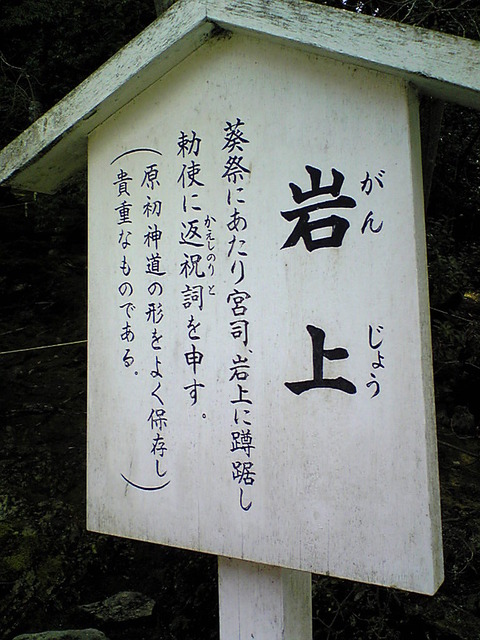 岩上
がんじょう
葵祭にあたり宮司、岩上に蹲踞し
勅使に返祝詞を申す。
かえしのりと
（原初神道の形をよく保存し
貴重なものである。）